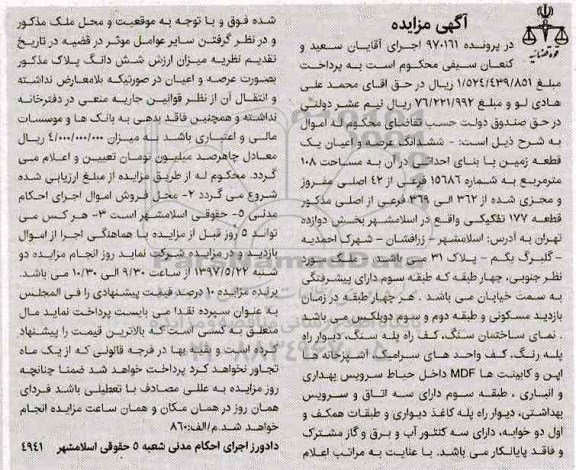 آگهی مزایده
قوه قضائیه
در پرونده ۹۷۰۱۶۱ اجرای آقایان سعید و
کنعان سیفی محکوم است به پرداخت
مبلغ ۱/۵۲۴/۴۳۹/۸۵۱ ریال در حق اقای محمد علی
هادی لو و مبلغ ۷۶/۲۲۱/۹۹۲ ریال نیم عشر دولتی
در حق صندوق دولت حسب تقاضای محکوم له اموال
به شرح ذیل است: - ششدانگ عرصه و اعیان یک
قطعه زمین با بنای احداثی در آن به مساحت ۱۰۸
مترمربع به شماره ۱۵۶۸۶ فرعی از ۴۲ اصلی مفروز
و مجزی شده از ۳۶۲ الی ۳۶۹ فرعی از اصلی مذکور
قطعه ۱۷۷ تفکیکی واقع در اسلامشهر بخش دوازده
تهران به آدرس: اسلامشهر - زرافشان - شهرک احمدیه
- گلبرگ یکم - پلاک ۳۱ می باشد - ملک مورد
نظر جنوبی، چهار طبقه که طبقه سوم دارای پیشرفتگی
به سمت خیابان می باشد . هر چهار طبقه در زمان
بازدید مسکونی و طبقه دوم و سوم دوبلکس می باشد
. نمای ساختمان سنگ، کف راه پله سنگ، دیوار راه
پله رنگ، کف واحد های سرامیک آشپزخانه ها
اپن و کابینت ها MDF داخل حیاط سرویس بهداری
و انباری ، طبقه سوم دارای سه اتاق و سرویس
بهداشتی، دیوار راه پله کاغذ دیواری و طبقات همکف و
اول دو خوابه، دارای سه کنتور آب و برق و گاز مشترک
و فاقد پایانکار می باشد. با عنایت به مراتب اعلام
شده فوق و با توجه به موقعیت و محل ملک مذکور
و در نظر گرفتن سایر عوامل موثر در قضیه در تاریخ
تقدیم نظریه میزان ارزش شش دانگ پلاک مذکور
بصورت عرصه و اعیان در صورتیکه بلامعارض نداشته
و انتقال آن از نظر قوانین جاریه منعی در دفترخانه
نداشته و همچنین فاقد بدهی به بانک ها و موسسات
مالی و اعتباری باشد به میزان ۴/۰۰۰/۰۰۰/۰۰۰ ریال
معادل چاهرصد میلیون تومان تعیین و اعلام می
گردد. محکوم له از طریق مزایده از مبلغ ارزیابی شده
شروع می گردد ۲- محل فروش اموال اجرای احکام
مدنی ۵- حقوقی اسلامشهر است ۳- هر کس می
تواند ۵ روز قبل از مزایده با هماهنگی اجرا از اموال
بازدید و در مزایده شرکت نماید روز انجام مزایده دو
شنبه ۱۳۹۷/۵/۲۲ از ساعت ۹/۳۰ الی ۱۰/۳۰ می باشد.
برنده مزایده ۱۰ درصد قیمت پیشنهادی را فی المجلس
به عنوان سپرده نقدا می بایست پرداخت نماید مال
متعلق به کسی است که بالاترین قیمت را پیشنهاد
کرده است و بقیه بها در فرجه قانونی که از یک ماه
تجاوز نخواهد کرد پرداخت خواهد شد ضمنا چنانچه
روز مزایده به عللی مصادف با تعطیلی باشد فردای
همان روز در همان مکان و همان ساعت مزایده انجام
خواهد شد.م/الف:۸۶۰
دادورز اجرای احکام مدنی شعبه ۵ حقوقی اسلامشهر ۴۹۴۱